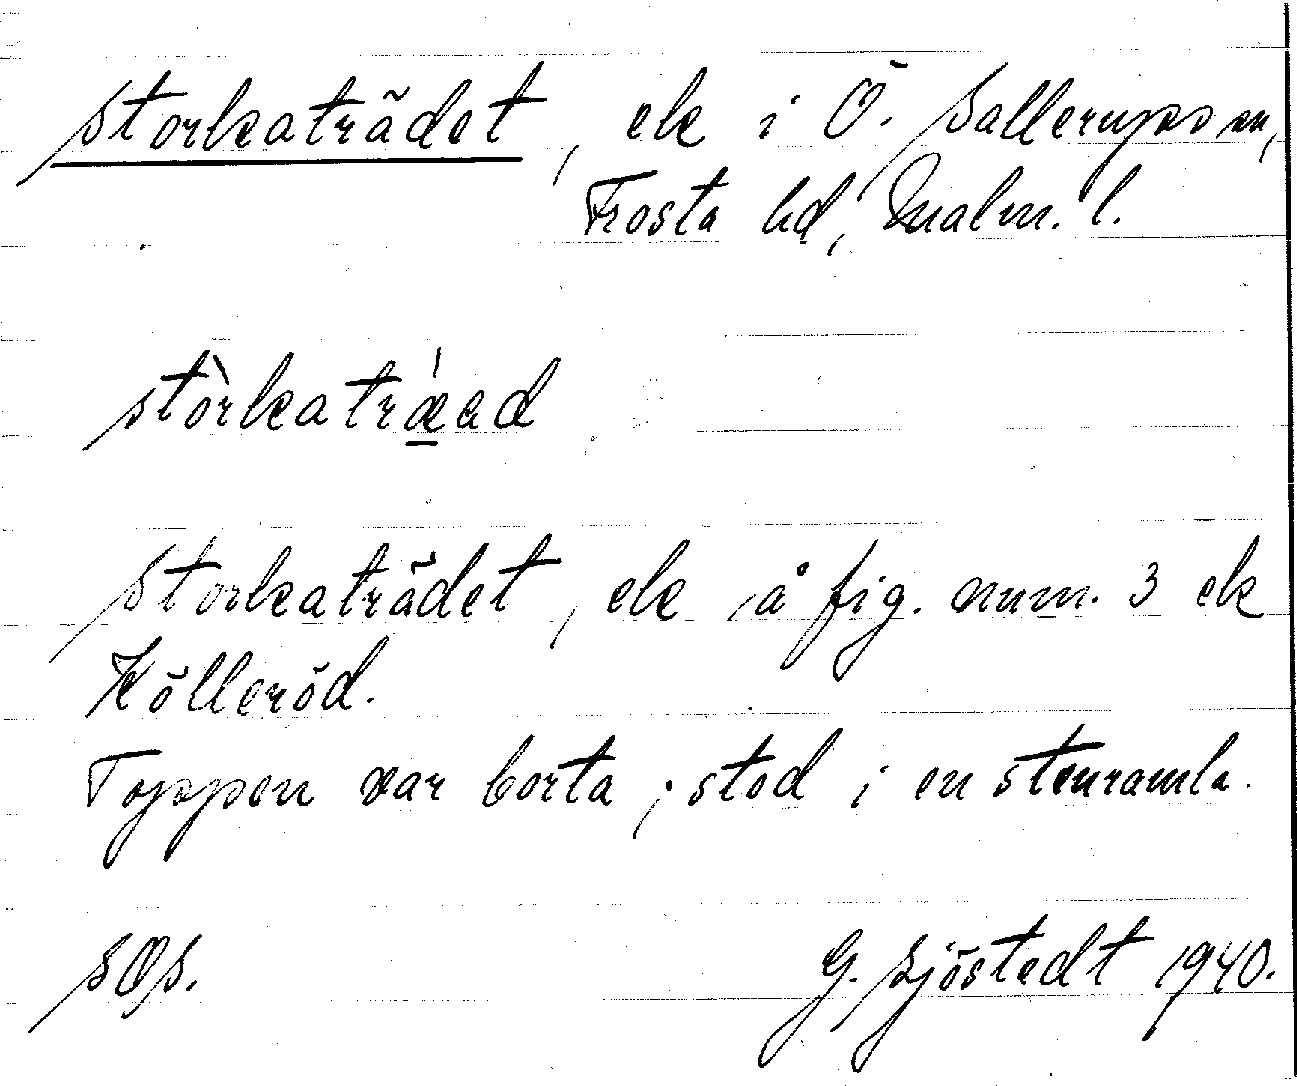 Storkaträdet, ek i Ö. Sallerups sn,
Frosta hd, Malm. l.
stòrkatrǽed
Storkaträdet, ek å fig. num. 3 ek
Kölleröd.
Toppen var borta; stod i en stenramla.
SOS. G. Sjöstedt 1940.